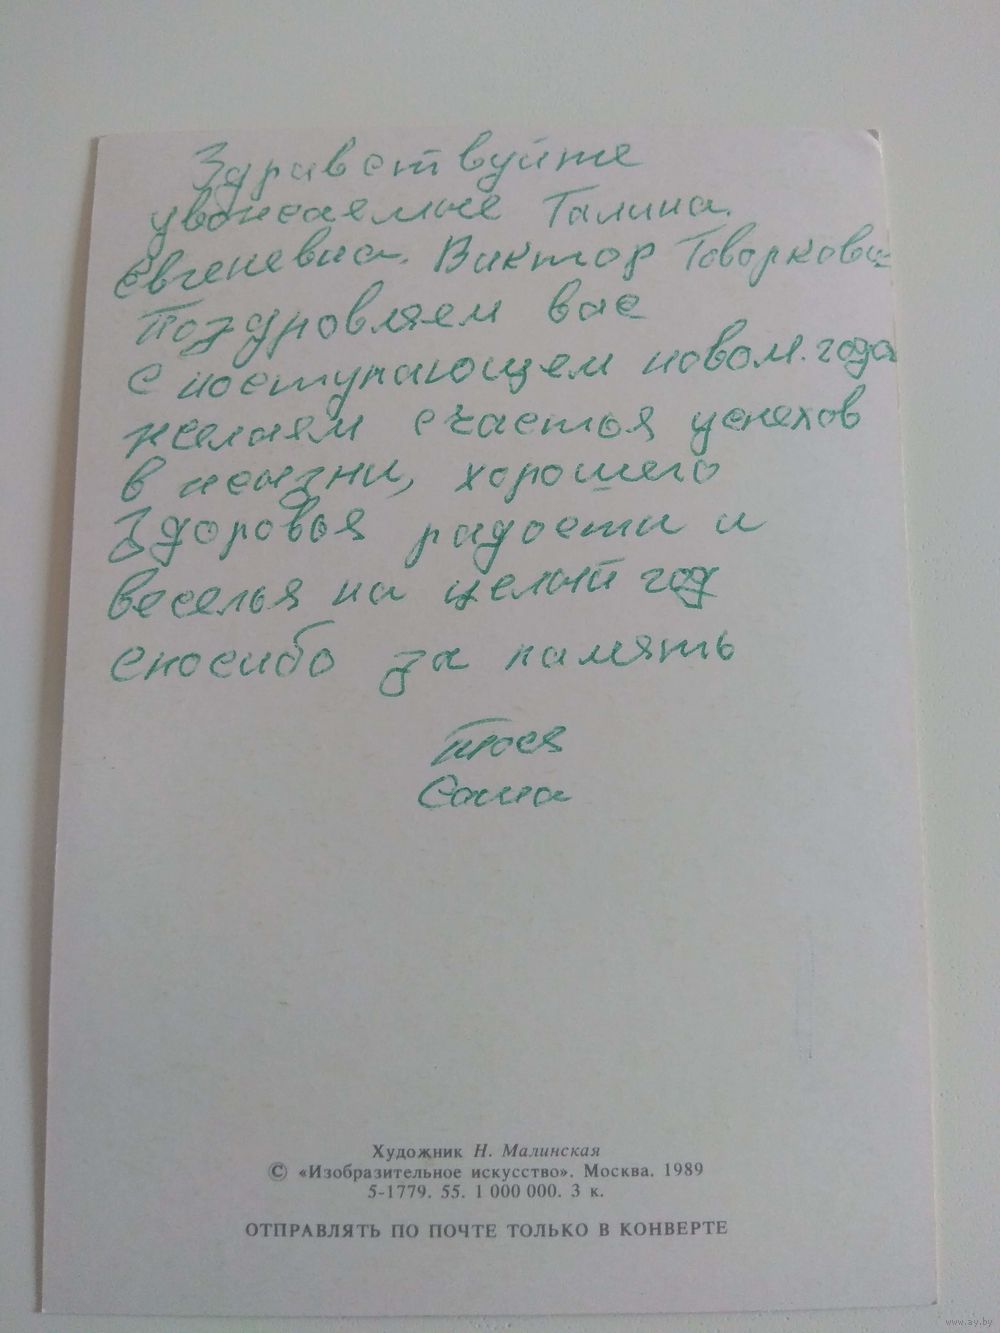 Здравствуйте
уважаемые Галина.
Евгеневна. Виктор
Поздровляем вас
с поступающем новом. года
желаем счастья успехов
в жизни, хорошего
Здоровья радости и
веселья на целый год
спосибо за память
Тося
Саша
Художник Н. Малинская
© «Изобразительное искусство». Москва. 1989
5-1779. 55. 1 000 000. 3 к.
ОТПРАВЛЯТЬ ПО ПОЧТЕ ТОЛЬКО В КОНВЕРТЕ
www.ay.by